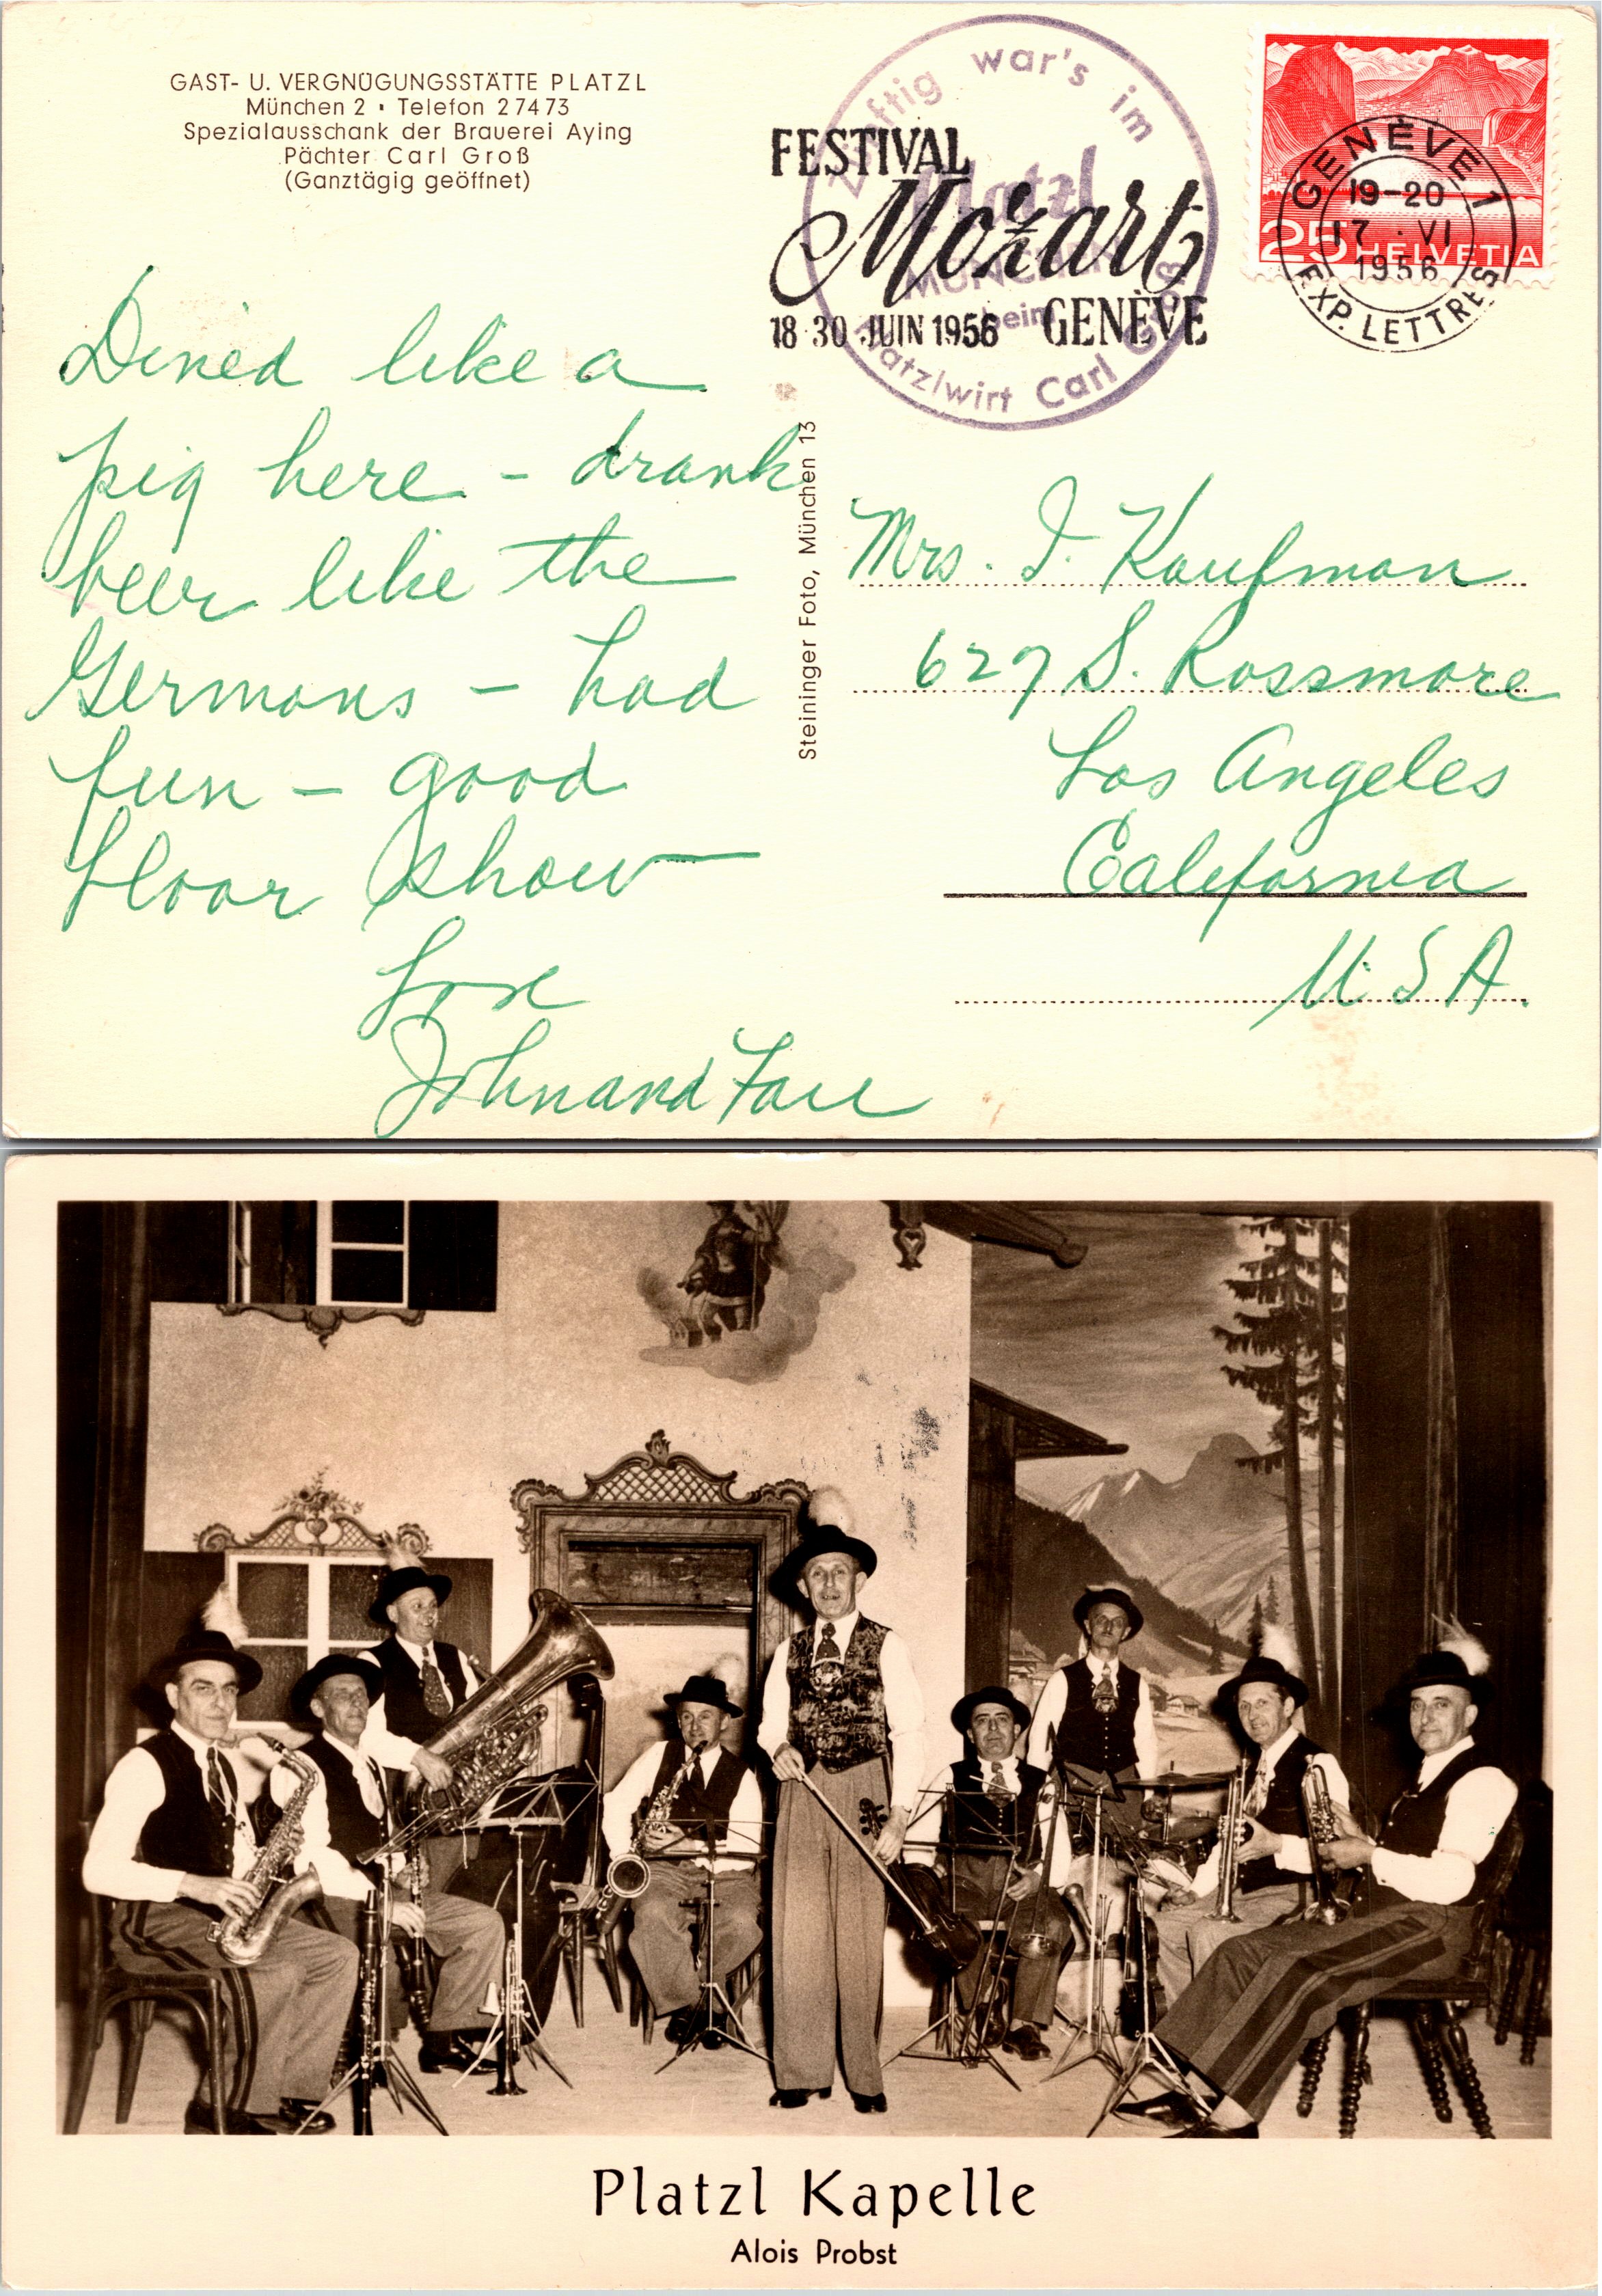 GAST- U. VERGNÜGUNGSSTÄTTE PLATZL
München 2 • Telefon 27473
Spezialausschank der Brauerei Aying
Pächter Carl Groß
(Ganztägig geöffnet)
Zünftig war's im
Platzl
MÜNCHEN
beim
Platzlwirt Carl Groß
FESTIVAL
Mozart
18-30 JUIN 1956 GENÈVE
25 HELVETIA
GENÈVE 1
19-20
17.VI
1956
EXP. LETTRES
Dined like a
pig here - drank
beer like the
Germans - had
fun - good
floor show
Love
John and
Steininger Foto, München 13
Mrs. I. Kaufman
627 S. Rossmore
Los Angeles
California
U.S.A.
Platzl Kapelle
Alois Probst